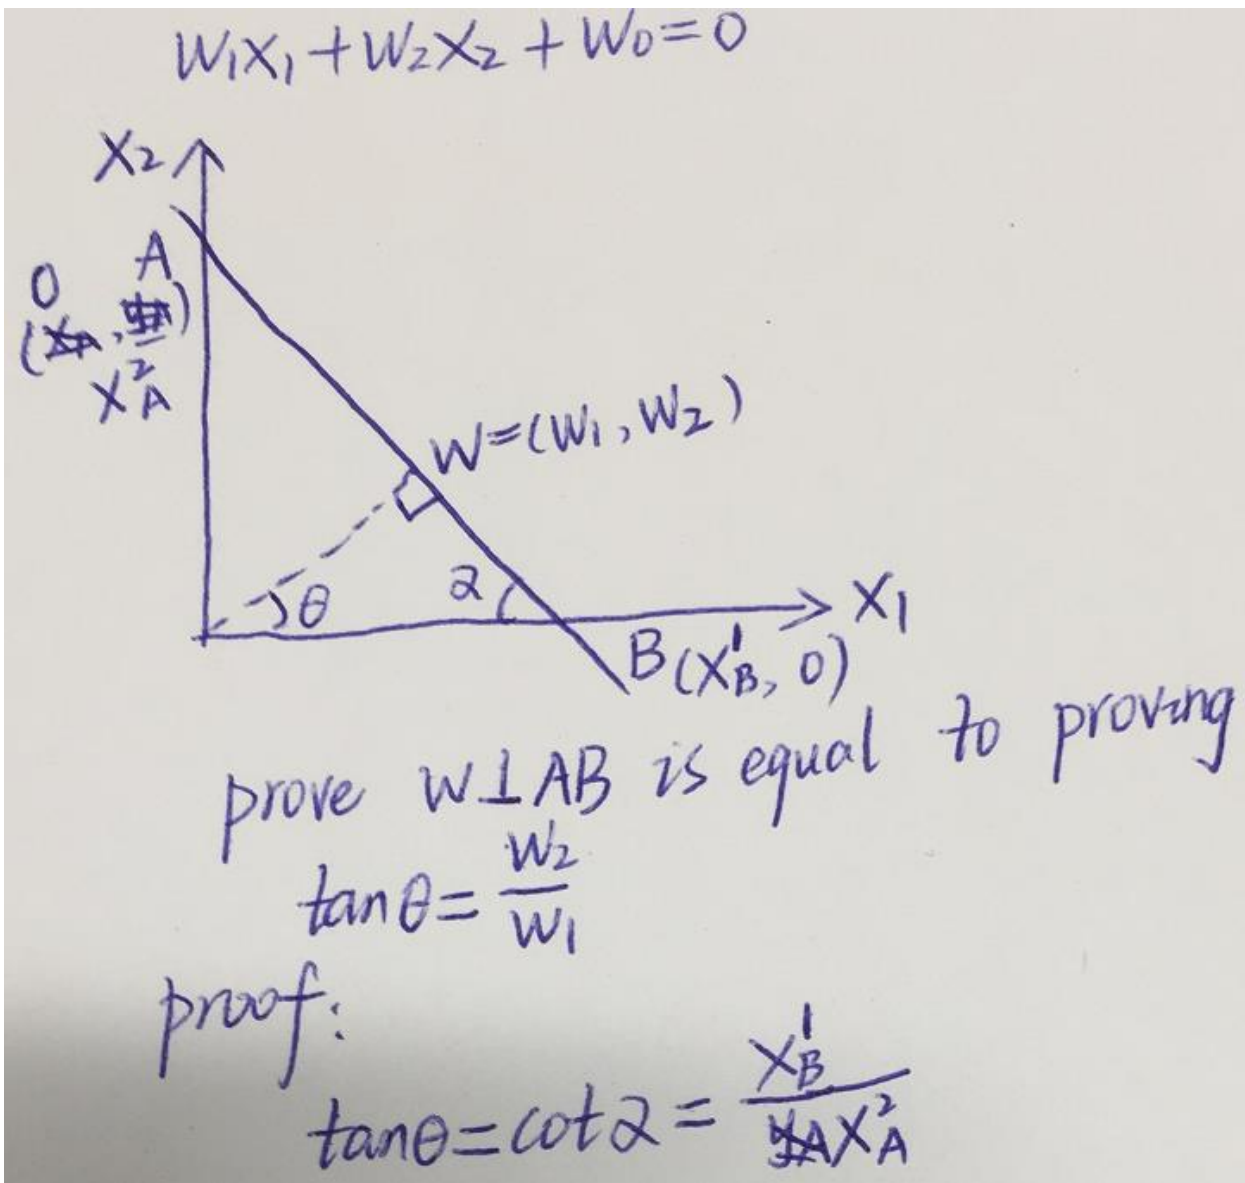 W₁X₁ + W₂X₂ + W₀ = 0
X₂
A
(0, X²_A)
W=(W₁, W₂)
θ
α
X₁
B(X¹_B, 0)
prove W⊥AB is equal to proving
tanθ = W₂/W₁
proof:
tanθ = cotα = X¹_B/X²_A